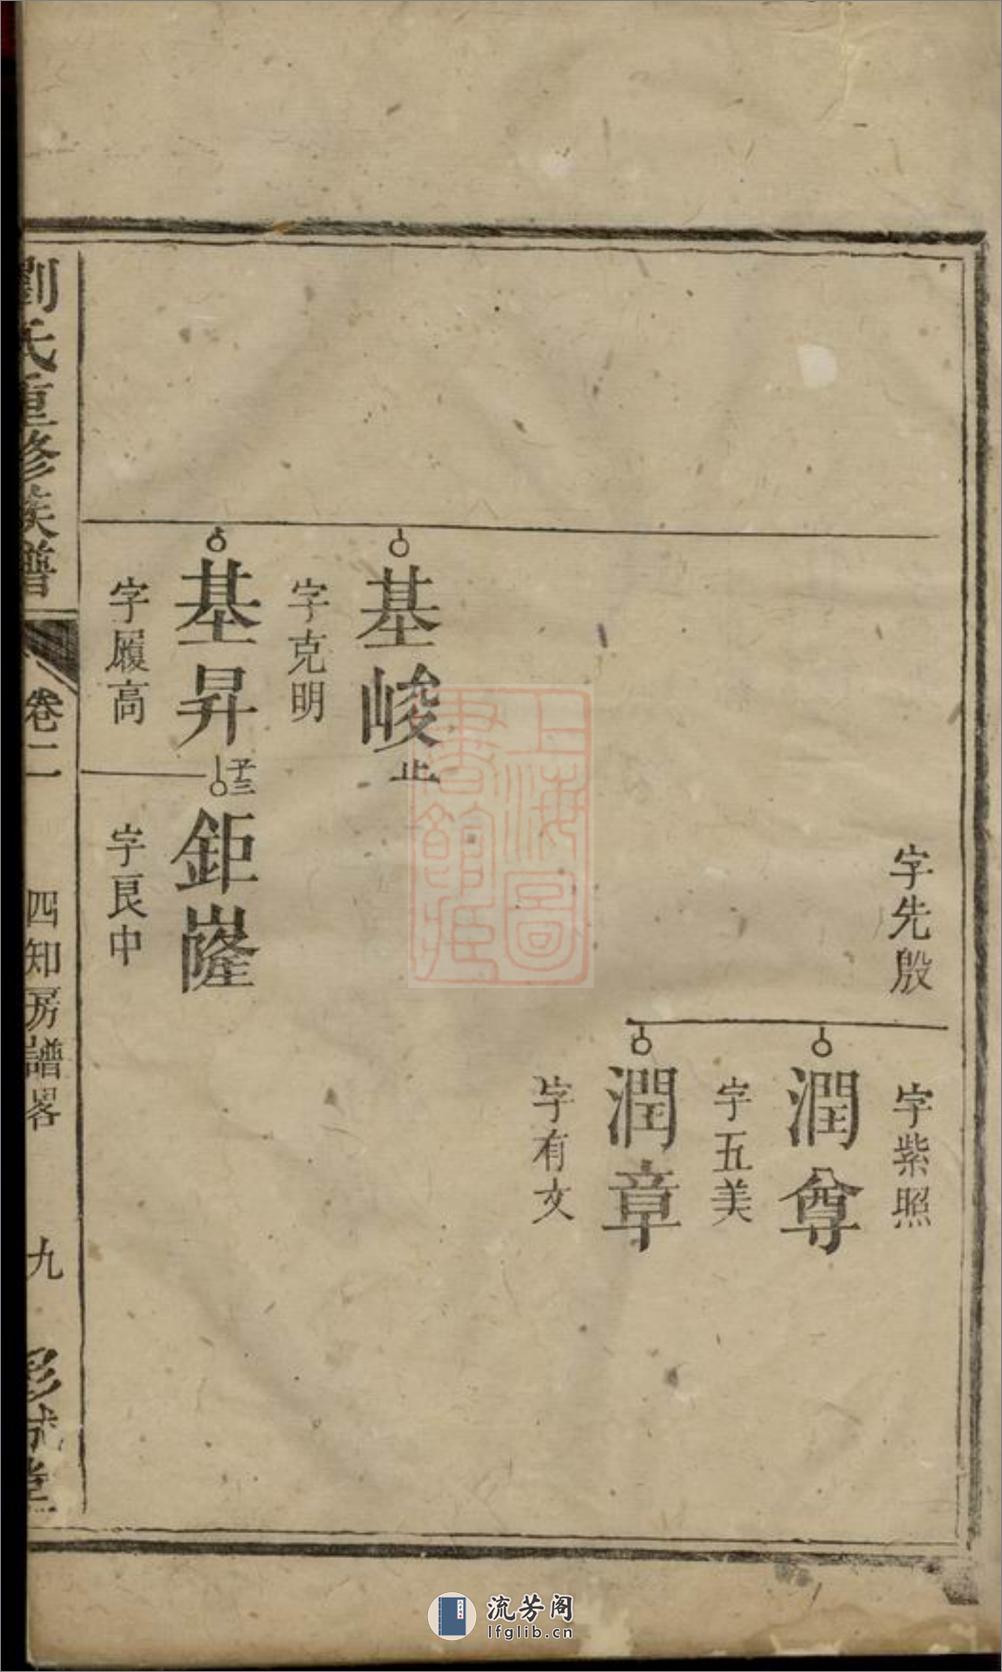 字先殷
字紫照
潤尊
字五美
潤章
字有文
基峻
止
字克明
基昇
子三
鉅隆
字履高
字艮中
劉氏重修族譜
卷二
四知房譜畧
九
上海圖
書館藏
流芳阁
lfglib.cn